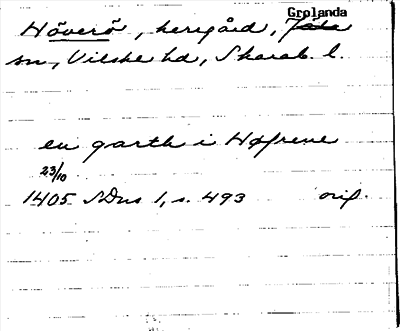 Grolanda
Höverö, herrgård, Jäla
sn, Vilske hd, Skarab. l.
en garth i Høfrene
23/10
1405 SDns 1, s. 493 orig.